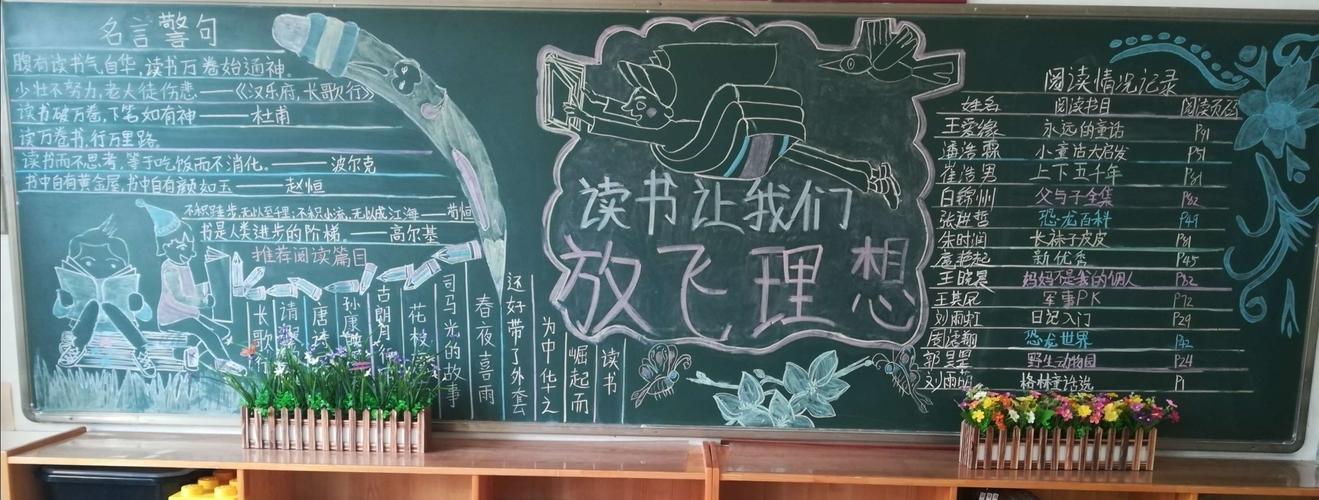 名言警句
腹有读书气自华，读书万卷始通神。
少壮不努力，老大徒伤悲——《汉乐府，长歌行》
读书破万卷，下笔如有神——杜甫
读万卷书，行万里路。
读书而不思考，等于吃饭而不消化。——波尔克
书中自有黄金屋，书中自有颜如玉——赵恒
不积跬步，无以至千里；不积小流，无以成江海——荀恒
书是人类进步的阶梯——高尔基
推荐阅读篇目
长歌
请
唐诗
孙康
古朗月
花枝
司马光的故事
春夜喜雨
还好带了外套
为中华之
崛起而
读书
读书让我们
放飞理想
阅读情况记录
姓名 阅读书目 阅读页码
王爱缘 永远的童话 P91
潘浩霖 小童话大启发 P51
崔浩男 上下五千年 P81
白锦州 父与子全集 P82
张进哲 恐龙百科 P49
朱时润 长袜子皮皮 P81
新优秀 P45
王晓晨 妈妈不是我的佣人 P82
王其凤 军事PK P72
刘雨虹 日记入门 P29
恐龙世界 P42
野生动物园 P24
刘雨 格林童话选 P1